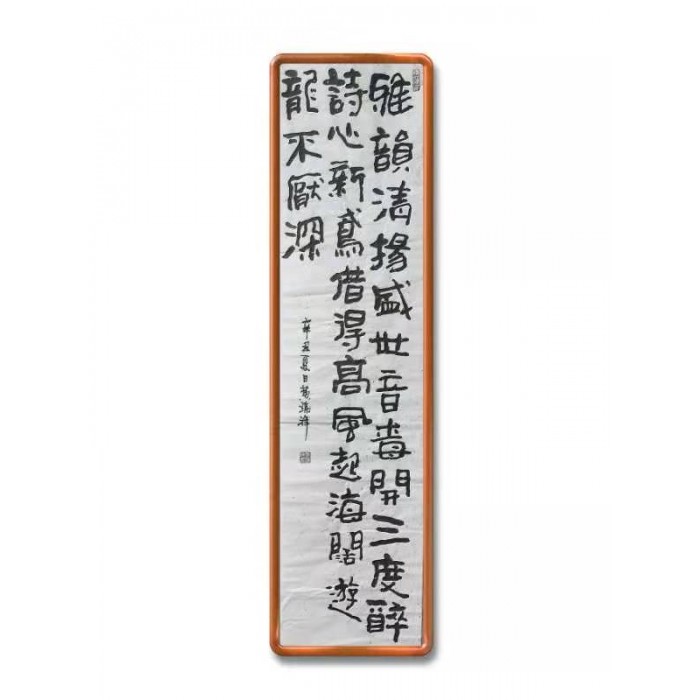 雅韻清揚盛世音梅開三度醉
詩心新鳶借得高風起海闊遊
龍不厭深
辛丑夏日